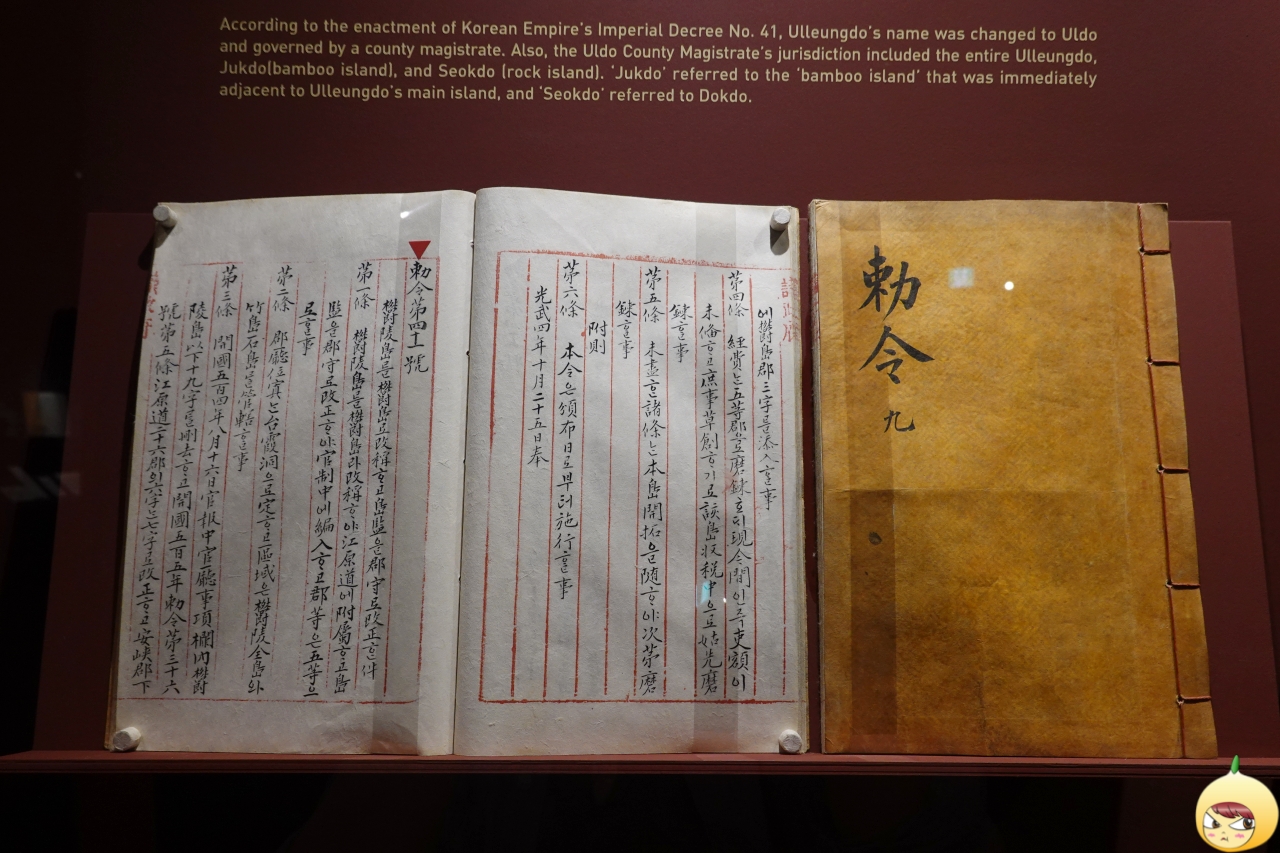 According to the enactment of Korean Empire's Imperial Decree No. 41, Ulleungdo's name was changed to Uldo
and governed by a county magistrate. Also, the Uldo County Magistrate's jurisdiction included the entire Ulleungdo,
Jukdo(bamboo island), and Seokdo (rock island). 'Jukdo' referred to the 'bamboo island' that was immediately
adjacent to Ulleungdo's main island, and 'Seokdo' referred to Dokdo.
勅令第四十一號
鬱陵島를鬱島로改稱ᄒᆞ고島監을郡守로改正ᄒᆞᆫ件
第一條 鬱陵島를鬱島라改稱ᄒᆞ야江原道에附屬ᄒᆞ고島
監을郡守로改正ᄒᆞ야官制中에編入ᄒᆞ고郡等은五等으
로ᄒᆞᆯ事
第二條 郡廳位寘ᄂᆞᆫ台霞洞으로定ᄒᆞ고區域은鬱陵全島와
竹島石島를管轄ᄒᆞᆯ事
第三條 開國五百四年八月十六日官報中官廳事項欄內鬱
陵島以下十九字를刪去ᄒᆞ고開國五百五年勅令第三十六
號第五條江原道二十六郡의六字ᄂᆞᆫ七字로改正ᄒᆞ고安峽郡下
에鬱島郡三字를添入ᄒᆞᆯ事
第四條 經費ᄂᆞᆫ五等郡으로磨鍊호되現今間인즉吏額이
未備ᄒᆞ고庶事草創ᄒᆞ기로該島收稅中으로姑先磨
鍊ᄒᆞᆯ事
第五條 未盡ᄒᆞᆫ諸條ᄂᆞᆫ本島開拓을隨ᄒᆞ야次第磨
鍊ᄒᆞᆯ事
附則
第六條 本令은頒布日로부터施行ᄒᆞᆯ事
光武四年十月二十五日奉
勅令 九